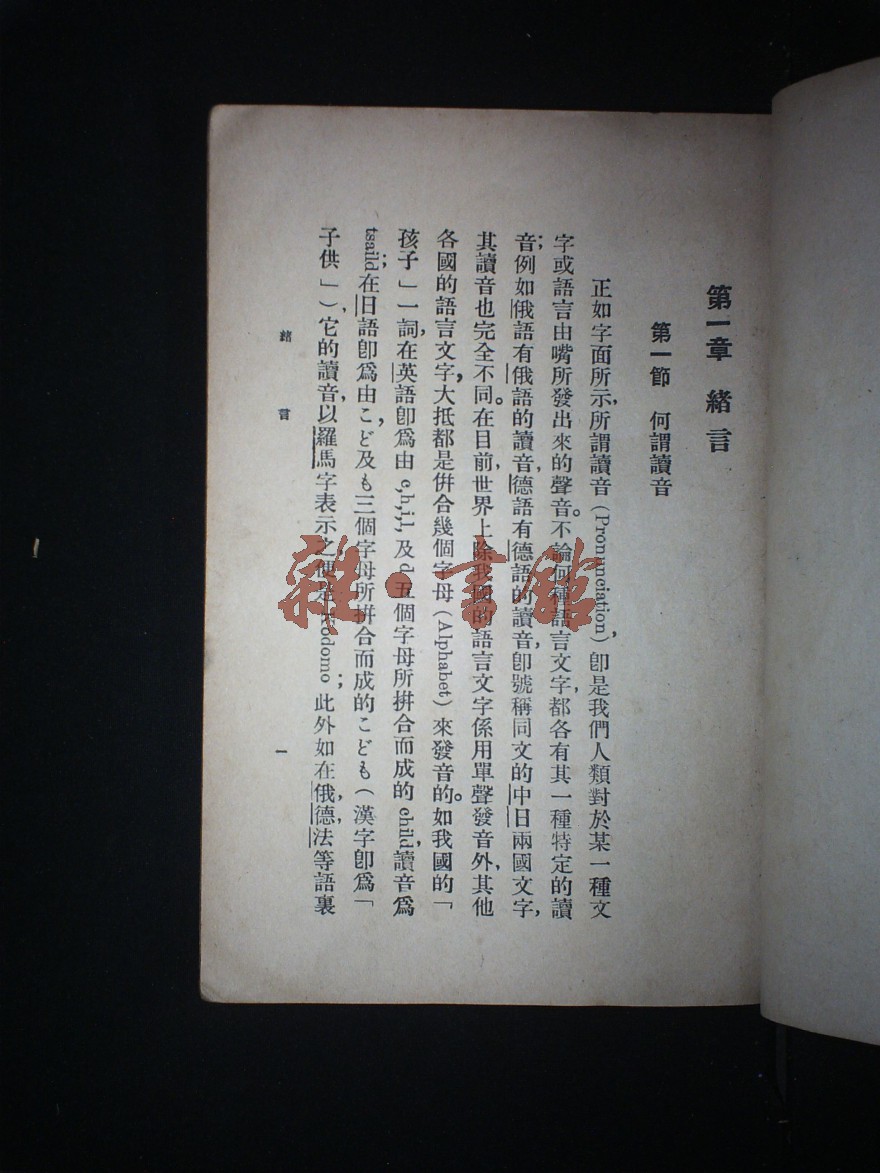 第一章　緒言
第一節　何謂讀音
正如字面所示，所謂讀音（Pronunciation）卽是我們人類對於某一種文
字或語言由嘴所發出來的聲音。不論何種語言文字，都各有其一種特定的讀
音；例如俄語有俄語的讀音，德語有德語的讀音，卽號稱同文的中日兩國文字，
其讀音也完全不同。在目前，世界上除我國的語言文字係用單聲發音外，其他
各國的語言文字，大抵都是併合幾個字母（Alphabet）來發音的。如我國的「
孩子」一詞，在英語卽爲由 c,h,i,l, 及 d 五個字母所拼合而成的 child 讀音爲
tsaild；在日語卽爲由こ，ど及も三個字母所拼合而成的こども（漢字卽爲「
子供」），它的讀音，以羅馬字表示之，便是 Kodomo；此外如在俄，德，法等語裏
緒言
一
雜·書館